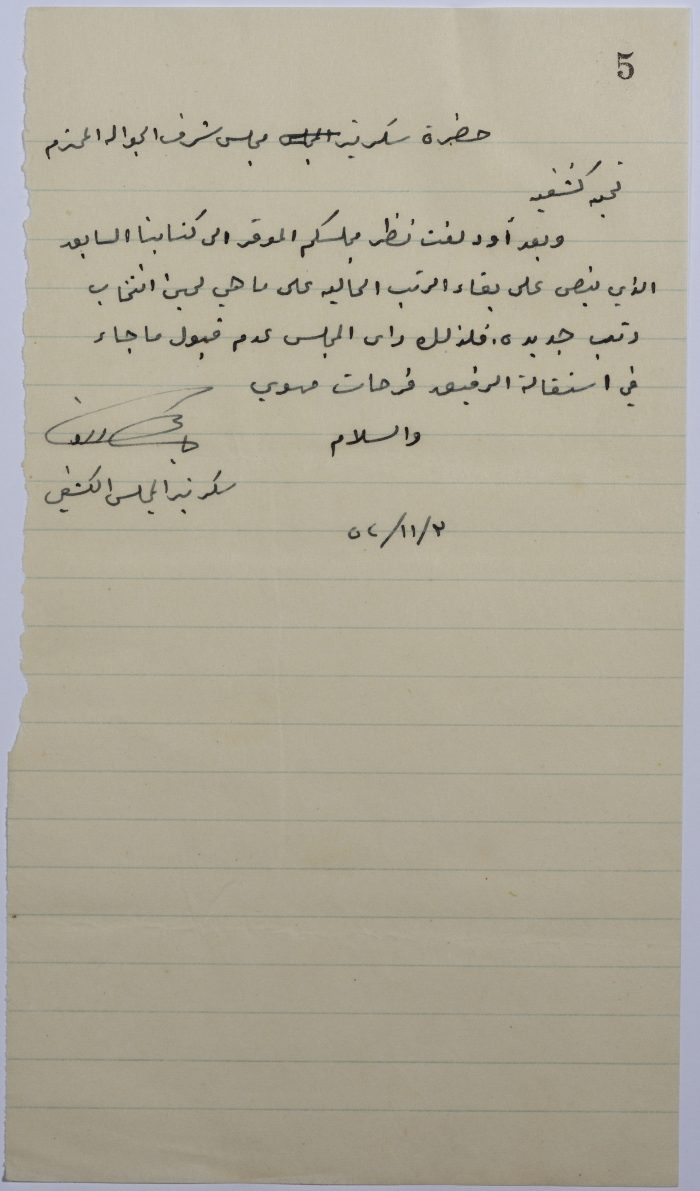 5
حضرة سكرتير المجلس مجلس شرف الجواله المحترم
تحيه كشفيه
وبعد أود لفت نظر مجلسكم الموقر الى كتابنا السابق
الذي ينص على بقاء الرتب الحاليه على ما هي لحين انتخاب
رتب جديده. فلذلك رأى المجلس عدم قبول ما جاء
في استقالة الرفيق فرحات مهوي
والسلام
سكرتير المجلس الكشفي
٥٢/١١/٣